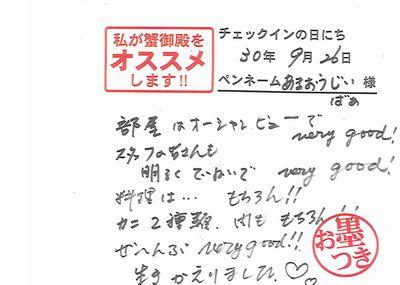 私が蟹御殿を
オススメ
します!!
チェックインの日にち
30年 9月 26日
ペンネーム あまおうじい 様
ばあ
部屋はオーシャンビューで very good!
スタッフの皆さんも
明るくていねいで very good!
料理は… もちろん!!
カニ2種類、肉も もちろん!!
ぜーんぶ very good!!
生きかえりました。♡♡
お墨つき